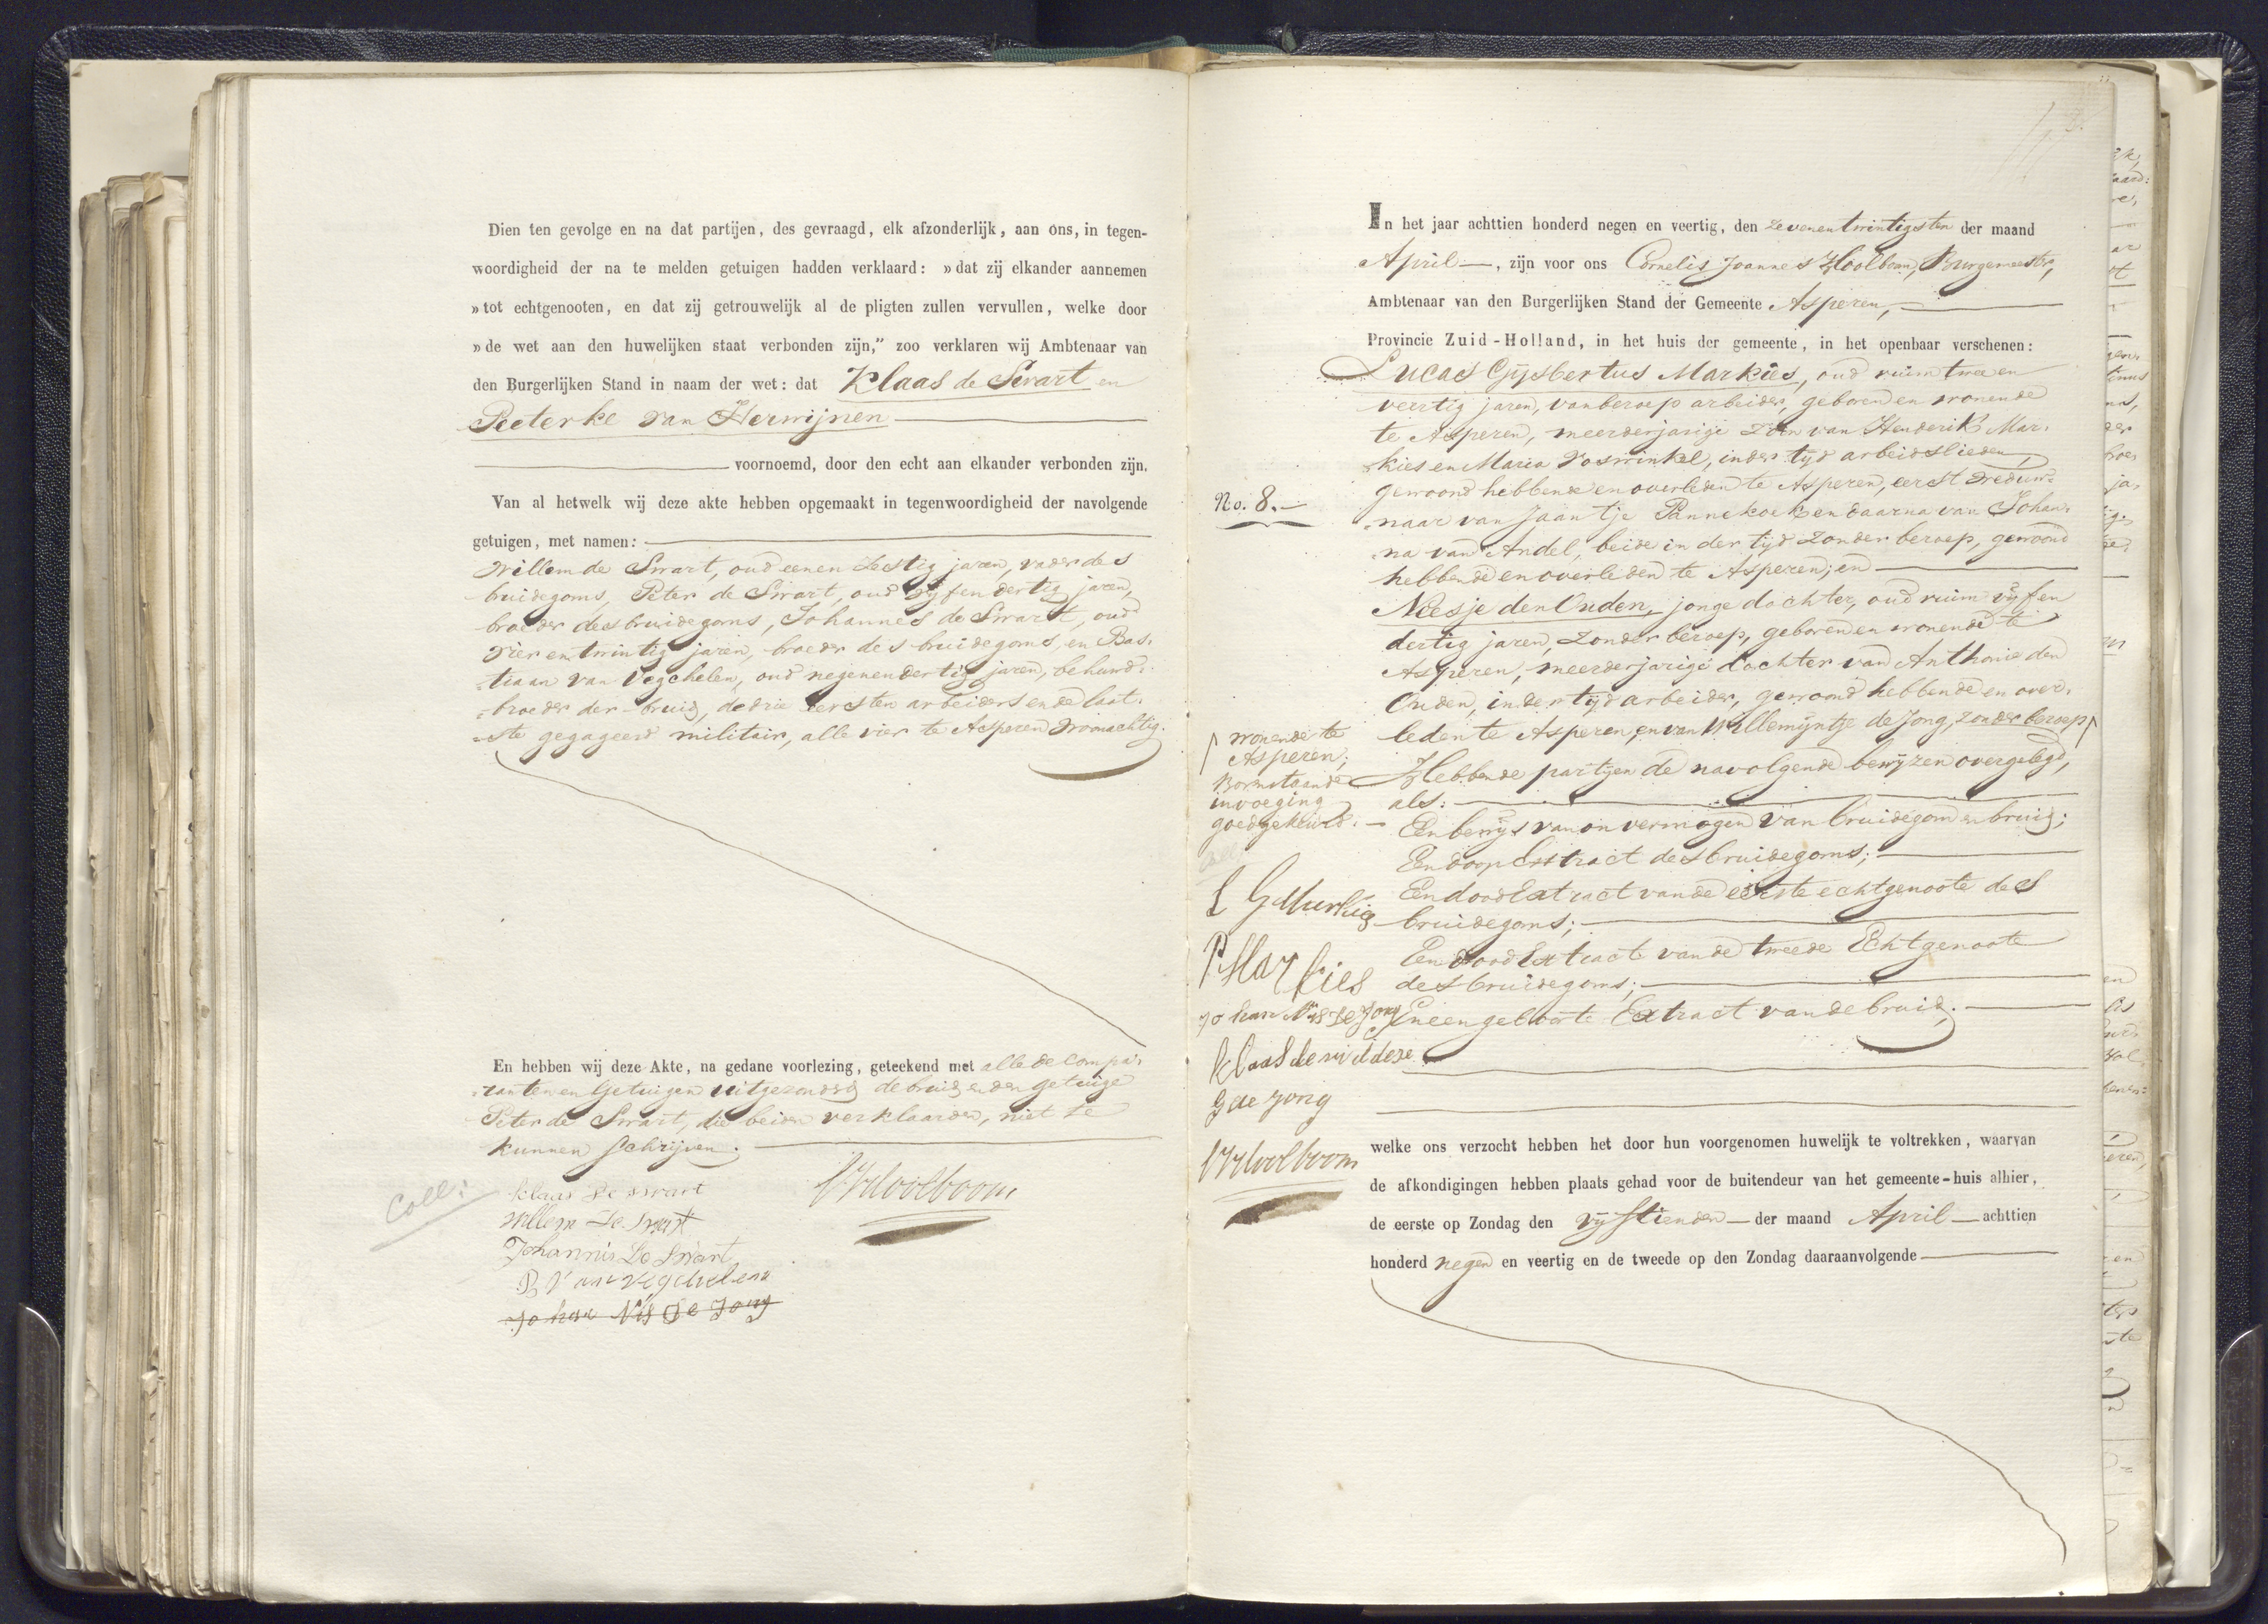 Dien ten gevolge en na dat partijen, des gevraagd, elk afzonderlijk, aan ons, in tegen-
woordigheid der na te melden getuigen hadden verklaard: »dat zij elkander aannemen
»tot echtgenooten, en dat zij getrouwelijk al de pligten zullen vervullen, welke door
»de wet aan den huwelijken staat verbonden zijn,” zoo verklaren wij Ambtenaar van
den Burgerlijken Stand in naam der wet: dat Klaas de Swart en
Peeterke van Herwijnen
voornoemd, door den echt aan elkander verbonden zijn.
Van al hetwelk wij deze akte hebben opgemaakt in tegenwoordigheid der navolgende
getuigen, met namen:
Willem de Swart, oud eenen Zestig jaren, vader des
buidegoms, Peter de Swart, oud vijfendertig jaren,
broeder des bruidegoms, Johannes de Swart, oud
vierentwintig jaren, broeder des bruidegoms, en Bas-
tiaan van Vegchelen, oud negenendertig jaren, behuwd-
broeder der bruid, de drie eersten arbeiders en de laat-
ste gegageerd militair, alle vier te Asperen woonachtig.
En hebben wij deze Akte, na gedane voorlezing, geteekend met alle de Compa-
ranten en Getuigen uitgezonderd de bruid en den getuige
Peter de Swart, die beiden verklaarden, niet te
kunnen schrijven.
Coll:
Klaas de swart
Willem De Swart
Johannis De Swart
B Van Vegchelen
Johan Nis de Jong
CJHoolboom
In het jaar achttien honderd negen en veertig, den zevenentwintigsten der maand
April, zijn voor ons Cornelis Joannes Hoolboom, Burgemeester,
Ambtenaar van den Burgerlijken Stand der Gemeente Asperen,
Provincie Zuid-Holland, in het huis der gemeente, in het openbaar verschenen:
Lucas Gijsbertus Markies, oud ruim tweeen
veertig jaren, van beroep arbeider, geboren en wonende
te Asperen, meerderjarige zoon van Henderik Mar-
kies en Maria Voswinkel, in der tijd arbeidslieden,
gewoond hebbende en overleden te Asperen, eerst Weduw-
naar van Jaantje Pannekoek en daarna van Johan-
na van Andel, beide in der tijd zonder beroep, gewoond
hebbende en overleden te Asperen; en
Neesje den Ouden, jonge dochter, oud ruim vijfen
dertig jaren, zonder beroep, geboren en wonende te
Asperen, meerderjarige dochter van Anthonie den
Ouden, in der tijd arbeider, gewoond hebbende en over-
leden te Asperen, en van Willemijntje de Jong, zonder beroep
Hebbende partijen de navolgende bewijzen overgelegd,
als:
Een bewijs van onvermogen van bruidegom en bruid;
Een doop Extract des bruidegoms;
Een dood Extract van de eerste echtgenoote des
bruidegoms;
Een dood Extract van de tweede Echtgenoote
des bruidegoms;
En een geboorte Extract van de bruid.
No. 8.
wonende te
Asperen;
Bovenstaande
invoeging
goedgekeurd.
L G Markies
P Markies
Johan Nis de Jong
Klaas de
G de Jong
CJHoolboom
welke ons verzocht hebben het door hun voorgenomen huwelijk te voltrekken, waarvan
de afkondigingen hebben plaats gehad voor de buitendeur van het gemeente-huis alhier,
de eerste op Zondag den vijftienden der maand April achttien
honderd negen en veertig en de tweede op den Zondag daaraanvolgende